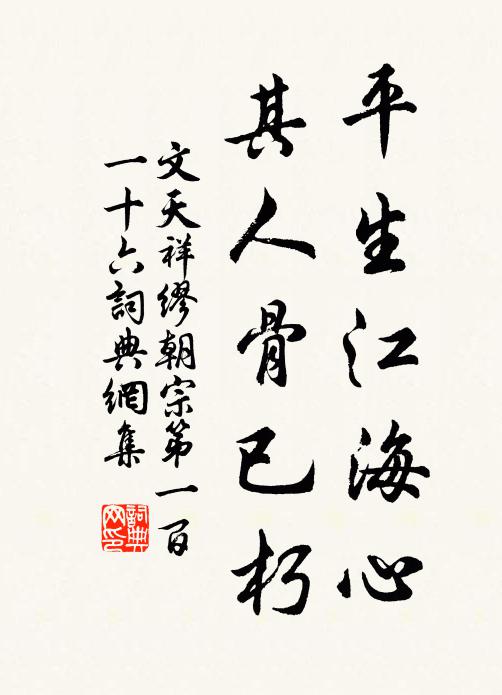 平生江海心
其人骨已朽
文天祥繆朝宗第一百
一十六詞典網集
詞典
网印